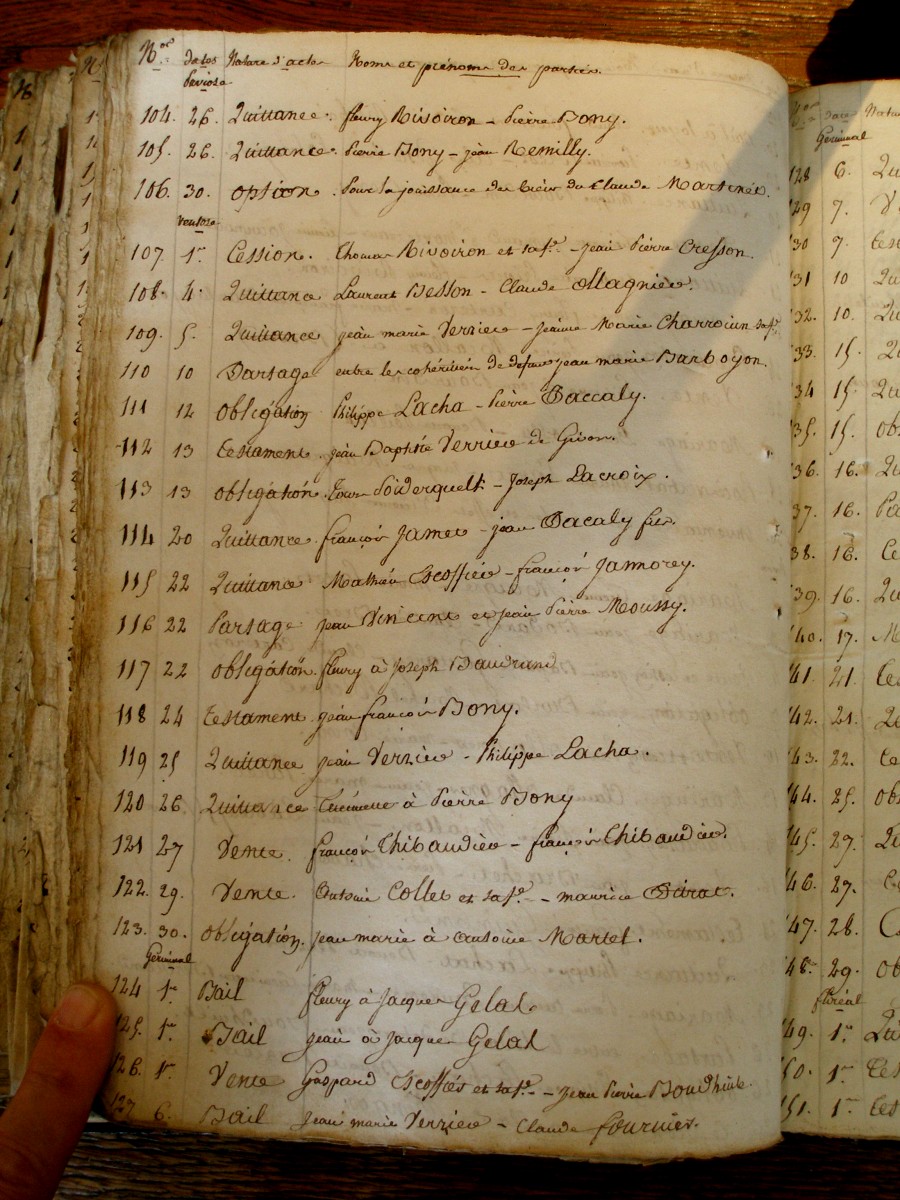 Nos. dates Nature d'actes Noms et prénoms des parties.
Pluviose
104. 26. Quittance. fleury Rivoiron - Pierre Bony.
105. 26. Quittance. Pierre Bony - jean Remilly.
106. 30. option. Pour la jouissance des biens de Claude Martinet.
ventose
107. 1er Cession. thomas Rivoiron et sa fe. - jean Pierre Cresson
108. 4. Quittance Laurent Besson - Claude Magnier.
109. 5. Quittance jean marie Verrier - jeanne Marie Charroin sa fe
110 10 Partage entre les cohéritiers de defunt jean marie Barboyon.
111 12 obligation Philippe Lacha - Pierre Baccaly.
112 13 testament. jean Baptiste Verrier de Givors.
113 13 obligation. - Joseph Lacroix.
114 20 Quittance. françois Jamet - jean Bacaly
115 22 Quittance Mathieu Escoffier - françois Jamorey.
116 22 Partage jean Vincent et jean Pierre Moussy.
117 22 obligation. fleury à Joseph Baudrand
118 24 testament. jean françois Bony.
119 25 Quittance jean Verrier - Philippe Lacha.
120 26 Quittance à Pierre Bony
121 27 Vente. françois Thibaudier - françois Thibaudier.
122. 29. Vente. Antoine Collet et sa fe. - maurice
123. 30. obligation. jean marie à Antoine Martel.
Germinal
124 1er Bail fleury à Jacques Gelas.
125. 1er Bail jean à Jacques Gelas
126. 1er. Vente Gaspard Escoffier et sa fe. - Jean Pierre
127 6. Bail jean marie Verrier - Claude fournier.
Nos dates Natu
Germinal
128 6. Qu
129 7. V
130 9. tes
131 10 Qu
132. 10. Qu
133. 15. Qu
134 15. Qu
135. 15. ob
136. 16. Qu
137. 16. Pa
138. 16. Ce
139. 16. Qu
140. 17. M
141. 21. te
142. 21. Qu
143. 22. te
144. 25. ob
145. 27. Qu
146. 27.
147. 28. C
148. 29. ob
floréal
149. 1er Qu
150. 1er tes
151. 1er tes